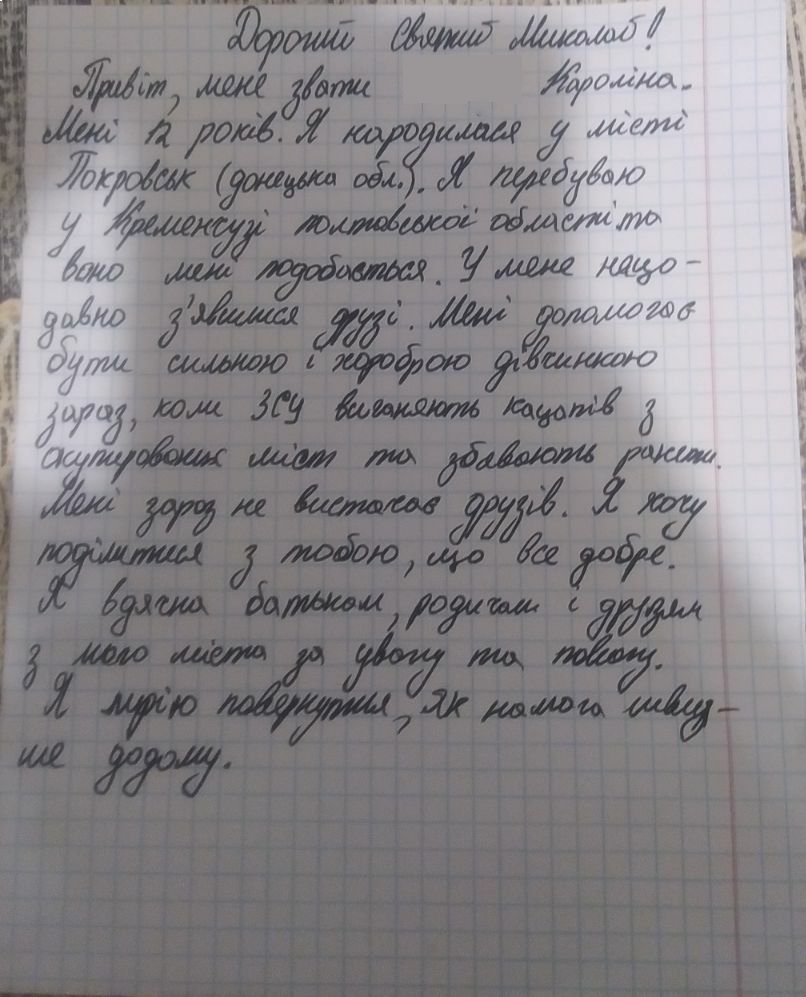 Дорогий Святий Миколай!
Привіт, мене звати Кароліна.
Мені 12 років. Я народилася у місті
Покровськ (донецька обл.). Я перебуваю
у Кременчузі полтавської області та
воно мені подобається. У мене нещо-
давно з'явилися друзі. Мені допомогає
бути сильною і хороброю дівчинкою
зараз, коли ЗСУ виганяють кацапів з
окупированих міст та збивають ракети.
Мені зараз не вистачає друзів. Я хочу
поділитися з тобою, що все добре.
Я вдячна батькам, родичам і друзям
з мого міста за увагу та повагу.
Я мрію повернутися, як намога швид-
ше додому.